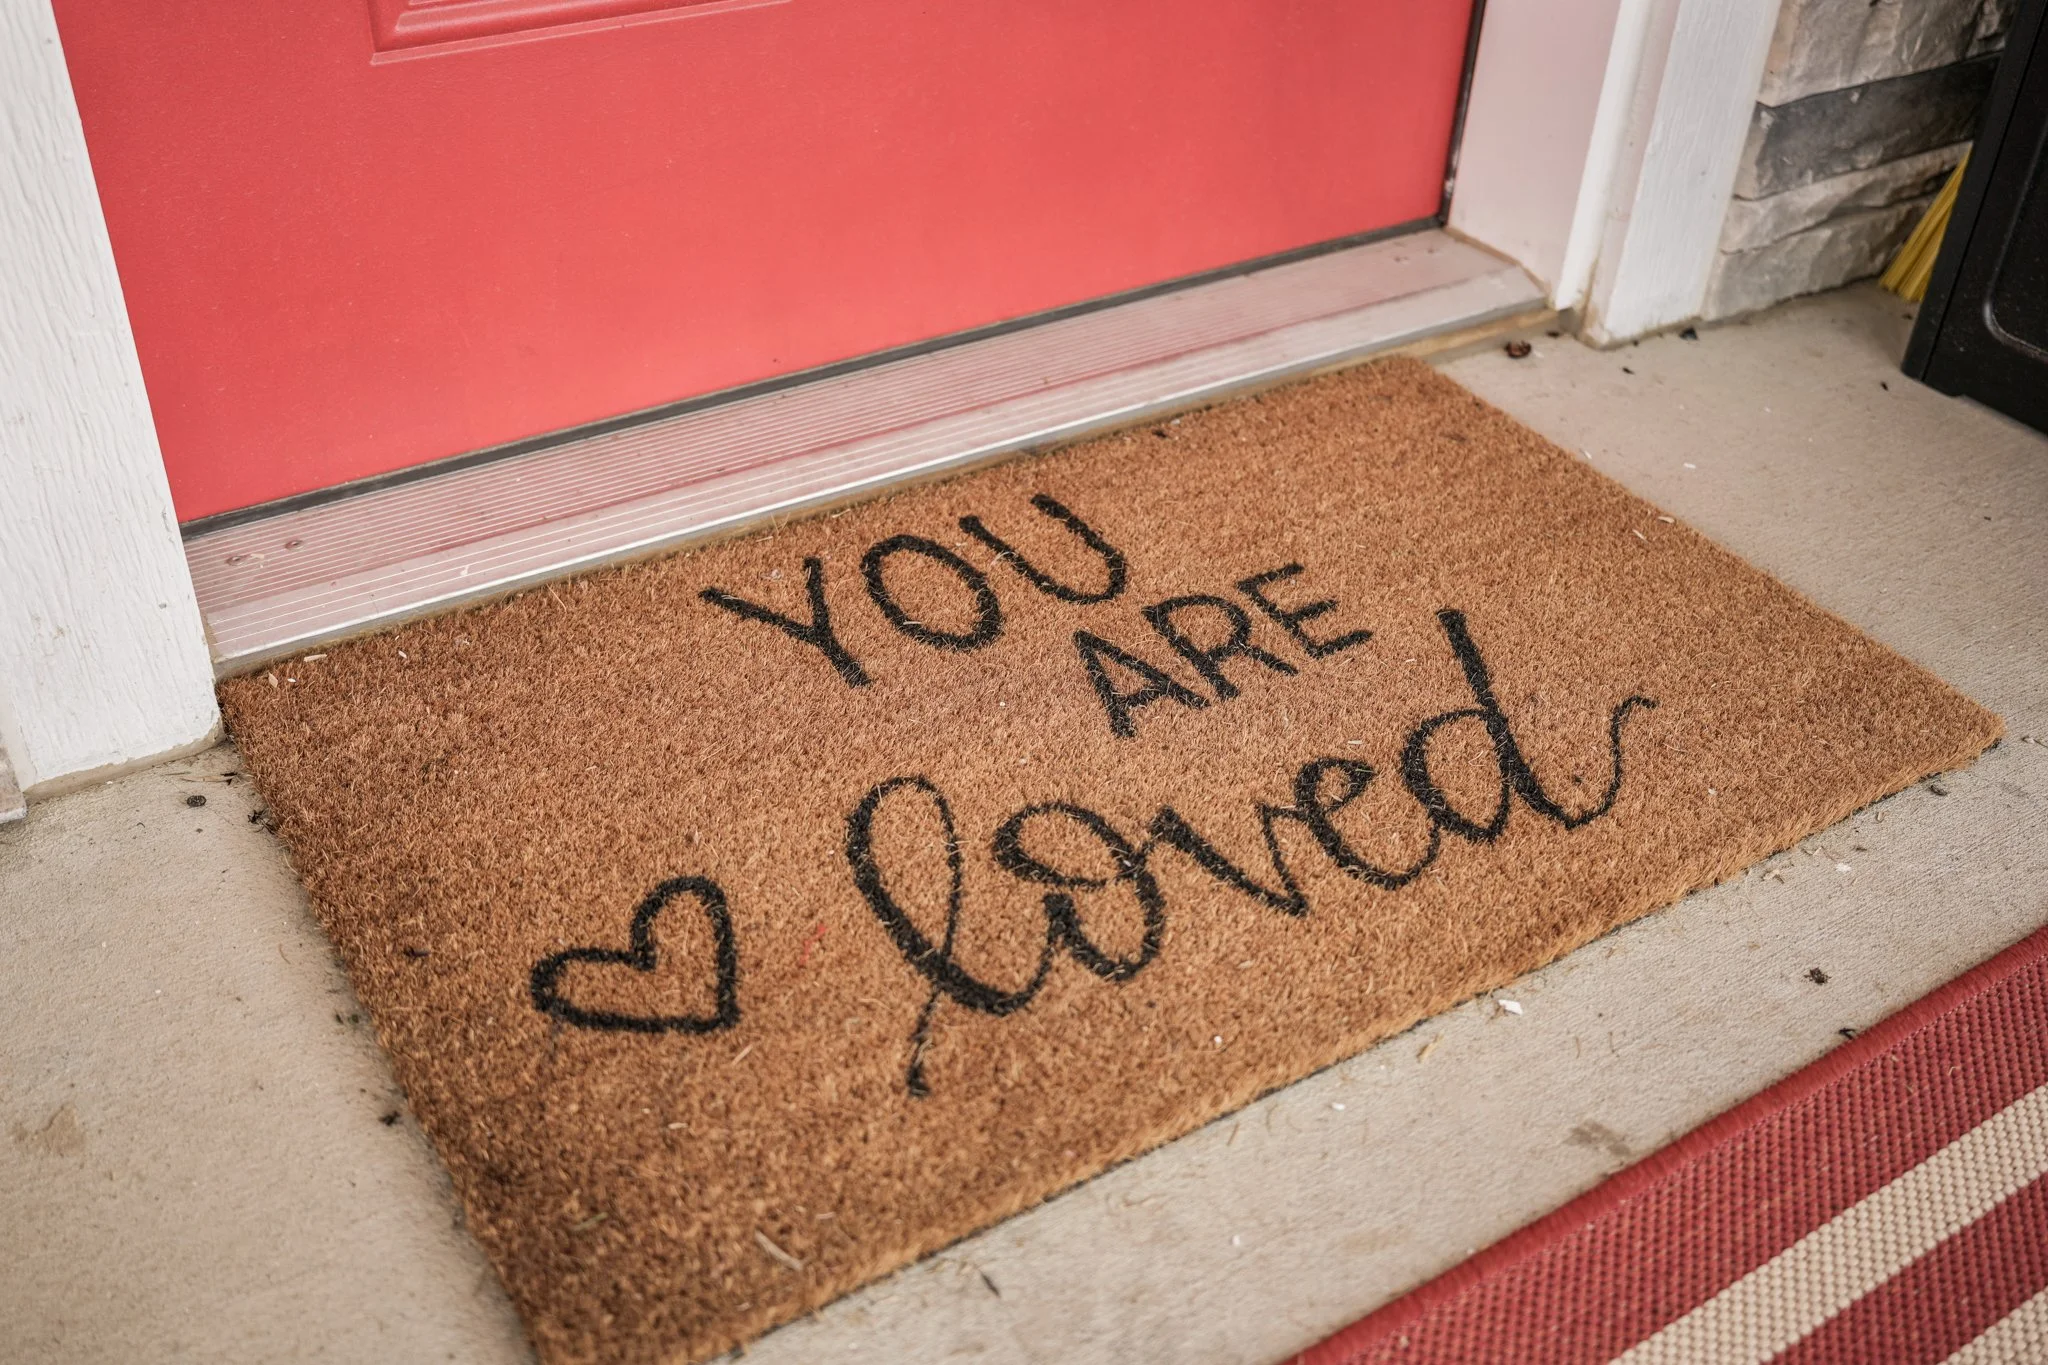 YOU
ARE
loved